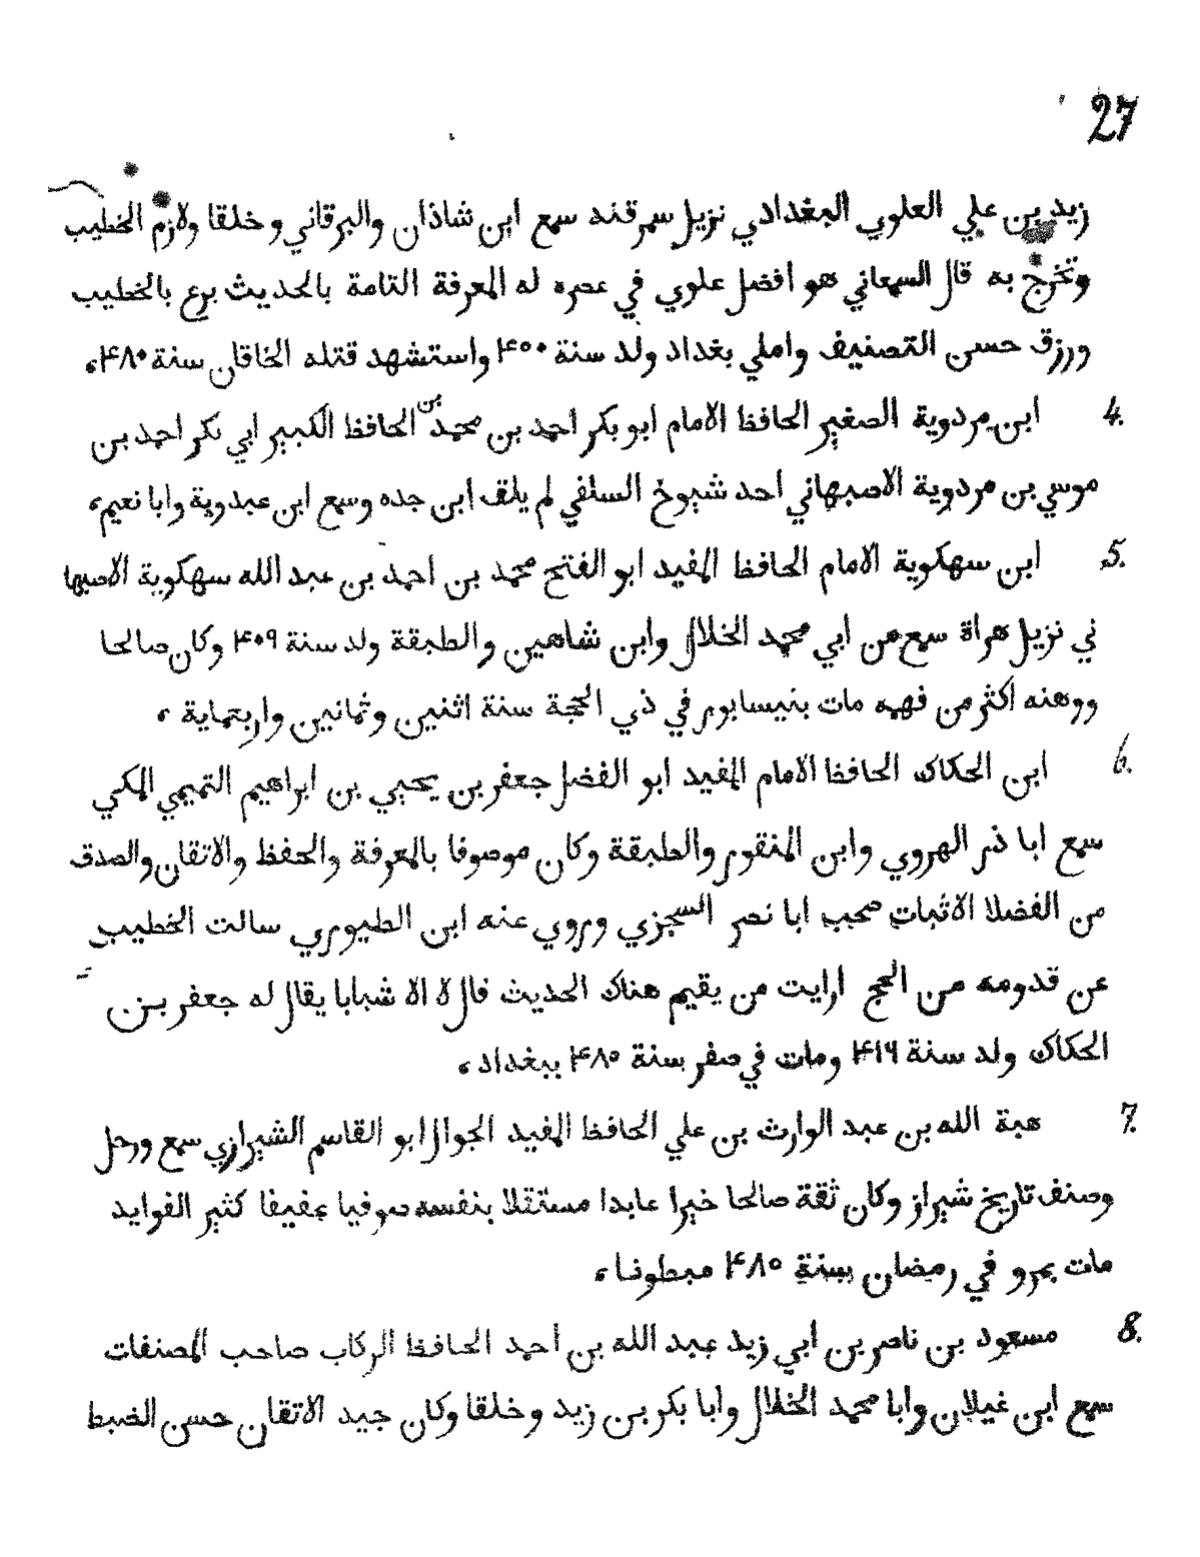 27
زيد بن علي العلوي البغدادي نزيل سمرقند سمع ابن شاذان والبرقاني وخلقا ولازم الخطيب
وتخرج به قال السمعاني هو افضل علوي في عصره له المعرفة التامة بالحديث برع بالخطيب
ورزق حسن التصنيف واملي ببغداد ولد سنة ۴۰۵ واستشهد قتله الخاقان سنة ۴۸۰،
4. ابن مردوية الصغير الحافظ الامام ابو بكر احمد بن محمد بن الحافظ الكبير ابي بكر احمد بن
موسي بن مردوية الاصبهاني احد شيوخ السلفي لم يلق ابن جده وسمع ابن عبدوية وابا نعيم،
5. ابن سهكوية الامام الحافظ المفيد ابو الفتح محمد بن احمد بن عبد الله سهكوية الاصبها
ني نزيل هراة سمع من ابي محمد الخلال وابن شاهين والطبقة ولد سنة ۴۰۹ وكان صالحا
ووهنه اكثر من فهمه مات بنيسابور في ذي الحجة سنة اثنين وثمانين واربتماية ،
6. ابن الحكاك الحافظ الامام المفيد ابو الفضل جعفر بن يحيي بن ابراهيم التميمي المكي
سمع ابا ذر الهروي وابن المنقور والطبقة وكان موصوفا بالمعرفة والحفظ والاتقان والصدق
من الفضلا الاثبات صحب ابا نصر السجزي وروي عنه ابن الطيوري سالت الخطيب
عن قدومه من الحج ارايت من يقيم هناك الحديث قال لا الا شبابا يقال له جعفر بن
الحكاك ولد سنة ۴۱۶ ومات في صفر سنة ۴۸۵ ببغداد،
7. هبة الله بن عبد الوارث بن علي الحافظ المفيد الجوال ابو القاسم الشيرازي سمع ورحل
وصنف تاريخ شيراز وكان ثقة صالحا خيرا عابدا مستقلا بنفسه صوفيا عفيفا كثير الفوايد
مات بمرو في رمضان سنة ۴۸۵ مبطونا،
8. مسعود بن ناصر بن أبي زيد عبد الله بن أحمد الحافظ الركاب صاحب المصنفات
سمع ابن غيلان وابا محمد الخلال وابا بكر بن زيد وخلقا وكان جيد الاتقان حسن الضبط